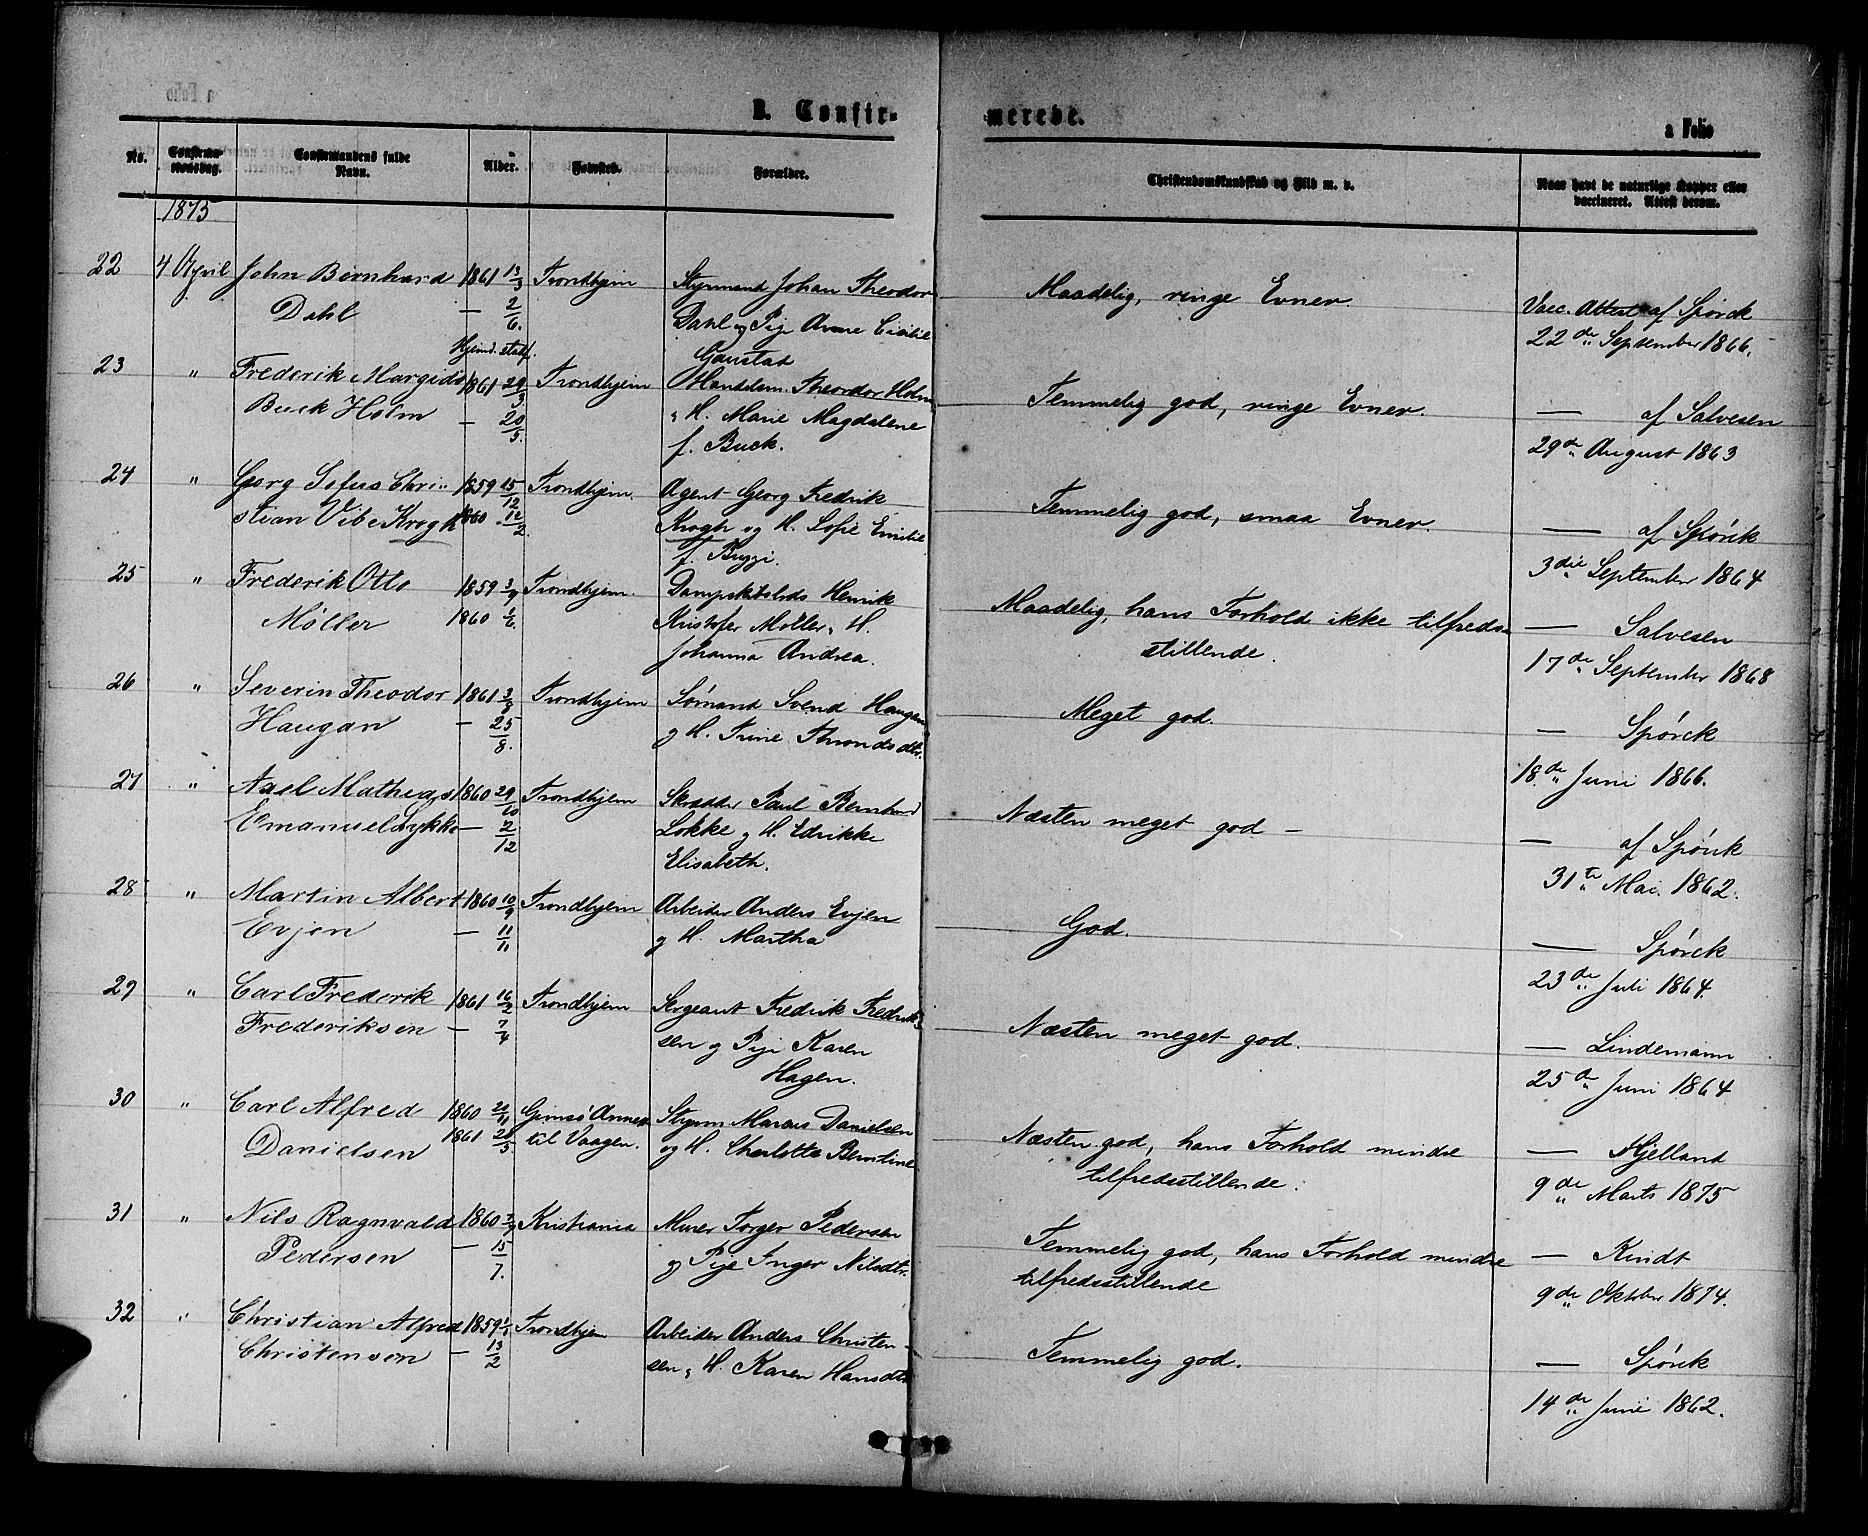 B. Confirmerede.
a Folio
No. Confirmationsdag. Confirmandens fulde Navn. Alder. Fødested. Forældre. Christendomskundskab og Flid m. v. Naar havt de naturlige Kopper eller vaccineret. Attest derom.
1875
22 4 April John Bernhard 1861 13/3 Trondhjem Styrmand Johan Theodor Maadelig, ringe Evner. Vacc. Attest af Spörck
Dahl — 2/6. Dahl og Pige Anne Cicilie 22de September 1866.
Hjemd. stadf. Gaustad
23 " Frederik Margido 1861 29/3 Trondhjem Handelsm. Theordor Holm Temmelig god, ringe Evner. — af Salvesen
Buck Holm — 20/5. " H. Marie Magdalene 29de August 1863
f. Buck.
24 " Georg Sofus Chri- 1859 15/12 Trondhjem. Agent Georg Fredrik Temmelig god, smaa Evner. — af Spörck
stian Vibe Krogh 1860 12/2. Krogh og H. Sofie Emilie 3die September 1864
f. Buggi.
25 " Frederik Otto 1859 Trondhjem. Dampskibsbds Henrik Maadelig, hans Forhold ikke tilfreds- — Salvesen
Möller 1860 1/6. Kristofer Möller, H. stillende. 17de September 1868
Johanna Andrea.
26 " Severin Theodor 1861 3/8 Trondhjem Sømand Svend Haugan Meget god. — Spörck
Haugan — 25/8. og H. Trine Throndsdtr. 18de Juni 1866.
27 " Axel Matheas 1860 29/10 Trondhjem Skrædder Paul Bernhard Næsten meget god — — af Spörck
Emanuel Lykke — 2/12 Lökke og H. Edrikke 31te Mai 1862.
Elisabeth.
28 " Martin Albert 1860 10/9 Trondhjem Arbeider Anders Evjen God. — Spörck
Evjen — 11/11 og H. Martha 23de Juli 1864.
29 " Carl Frederik 1861 16/2 Trondhjem Sergeant Fredrik Fredrik- Næsten meget god. — Lindemann
Frederiksen — 7/4 sen og Pige Karen 25de Juni 1864
Hagen.
30 " Carl Alfred 1860 Gimsö Annex Styrm. Marcus Danielsen Næsten god, hans Forhold mindre — Kjelland
Danielsen 1861 28/5 til Vaagen. og H. Charlotte Berntine tilfredsstillende. 9de Marts 1875
31 " Nils Ragnvald 1860 Kristiania Murer Torger Pedersen Temmelig god, hans Forhold mindre — Kindt
Pedersen — 15/7. og Pige Inger Nilsdtr. tilfredsstillende 9de Oktober 1874.
32 " Christian Alfred 1859 Trondhjem Arbeider Anders Christen- Temmelig god. — Spörck
Christensen — 13/2 sen, H. Karen Hansdtr 14de Juni 1862.